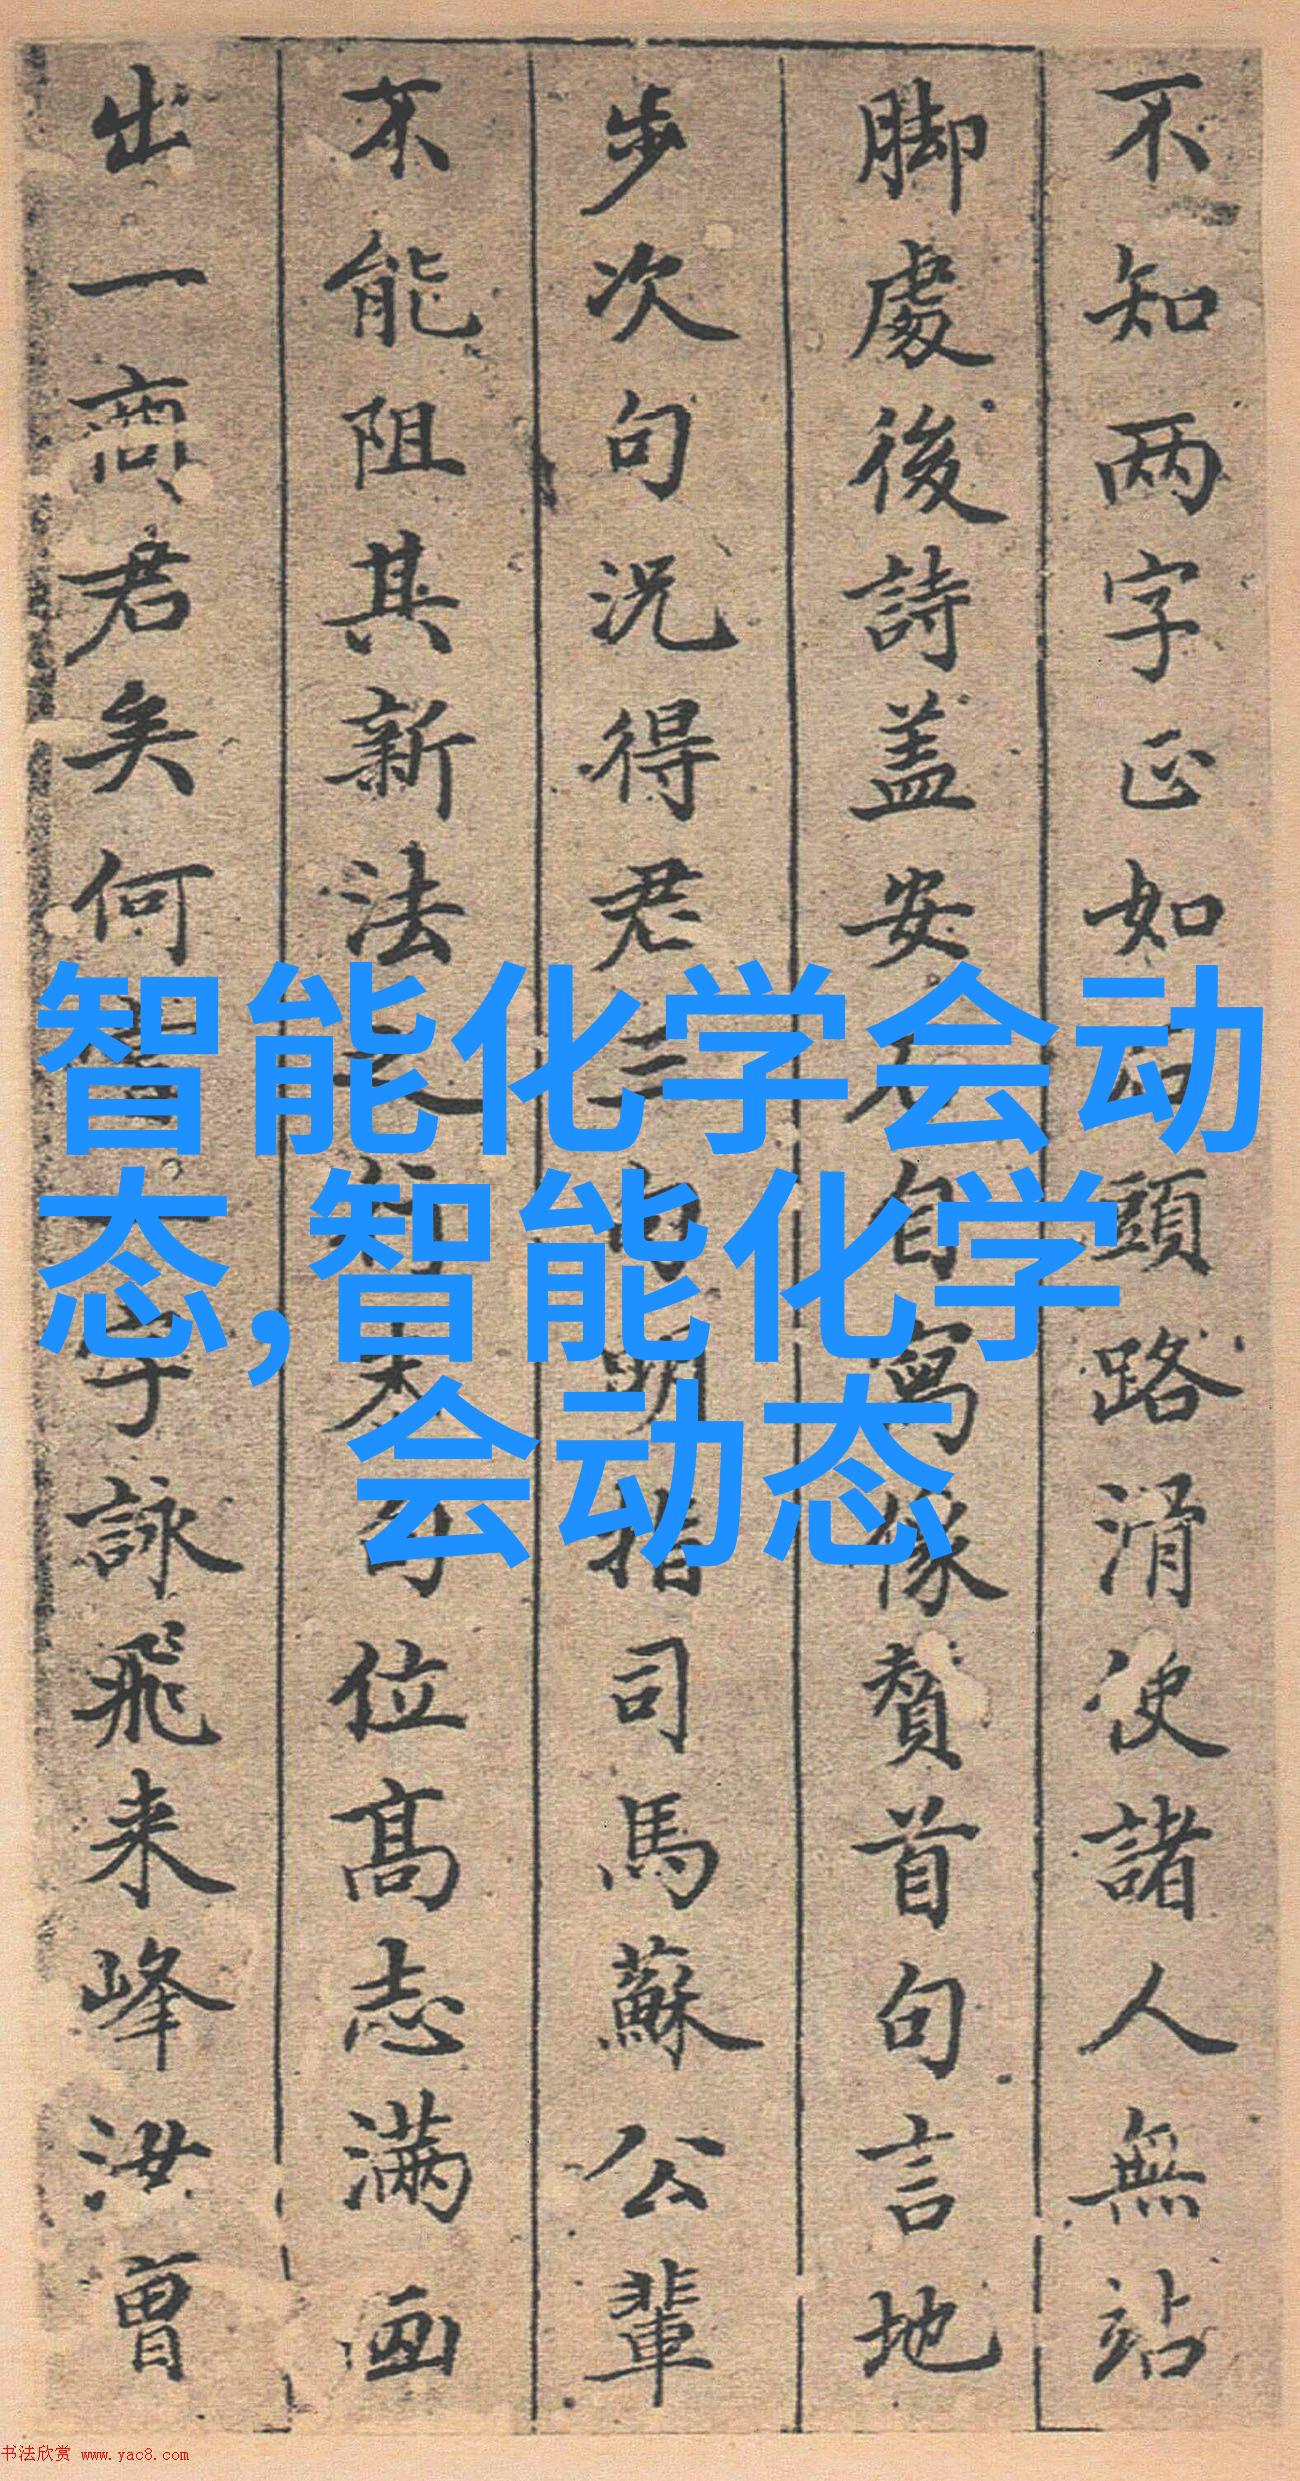 不知两字正如石頭路滑使諸人無站
脚處後詩盖安石自寫像賛首句言地
步次句況得君三句明指司馬蘇公輩
不能阻其新法之行末句位高志满画
出一商君矣何字詠飛来峰汝曽
智能化学会动
态,智能化学
会动态
书法欣赏 www.yac8.com